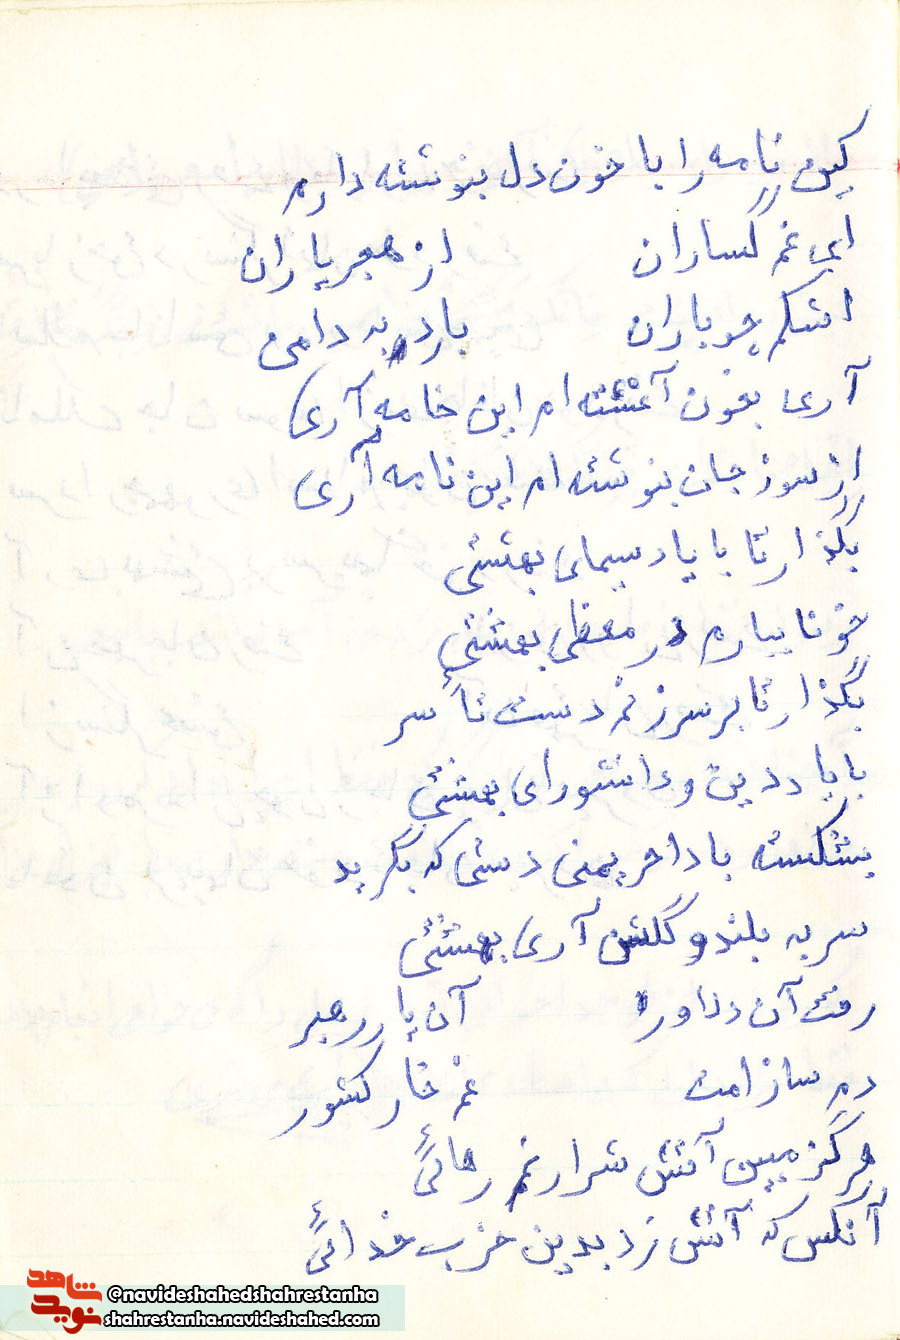 کین نامه را با خون دل بنوشته دارم
ای غم گساران از هجر یاران
اشکم چو باران بارد به دامن
آری بخون آغشته ام این خامه آری
از سوز جان بنوشته ام این نامه آری
بگذار تا با یاد سیمای بهشتی
خونابه بارم در معظی بهشتی
بگذار تا بر سر زنم دست تأسر
با یاد دین و دانشورای بهشتی
بشکسته بادا دستی که بگرید
سر به بلند و گلشن آری بهشتی
رفت آن دلاور آن یار رهبر
دم ساز امت غم خار کشور
هرگز مبین آتش شرارنم رهائی
آنکس که آتش زد بدین حزب خدائی
شاهد
نوید
@navideshahedshahrestanha
shahrestanha.navideshahed.com